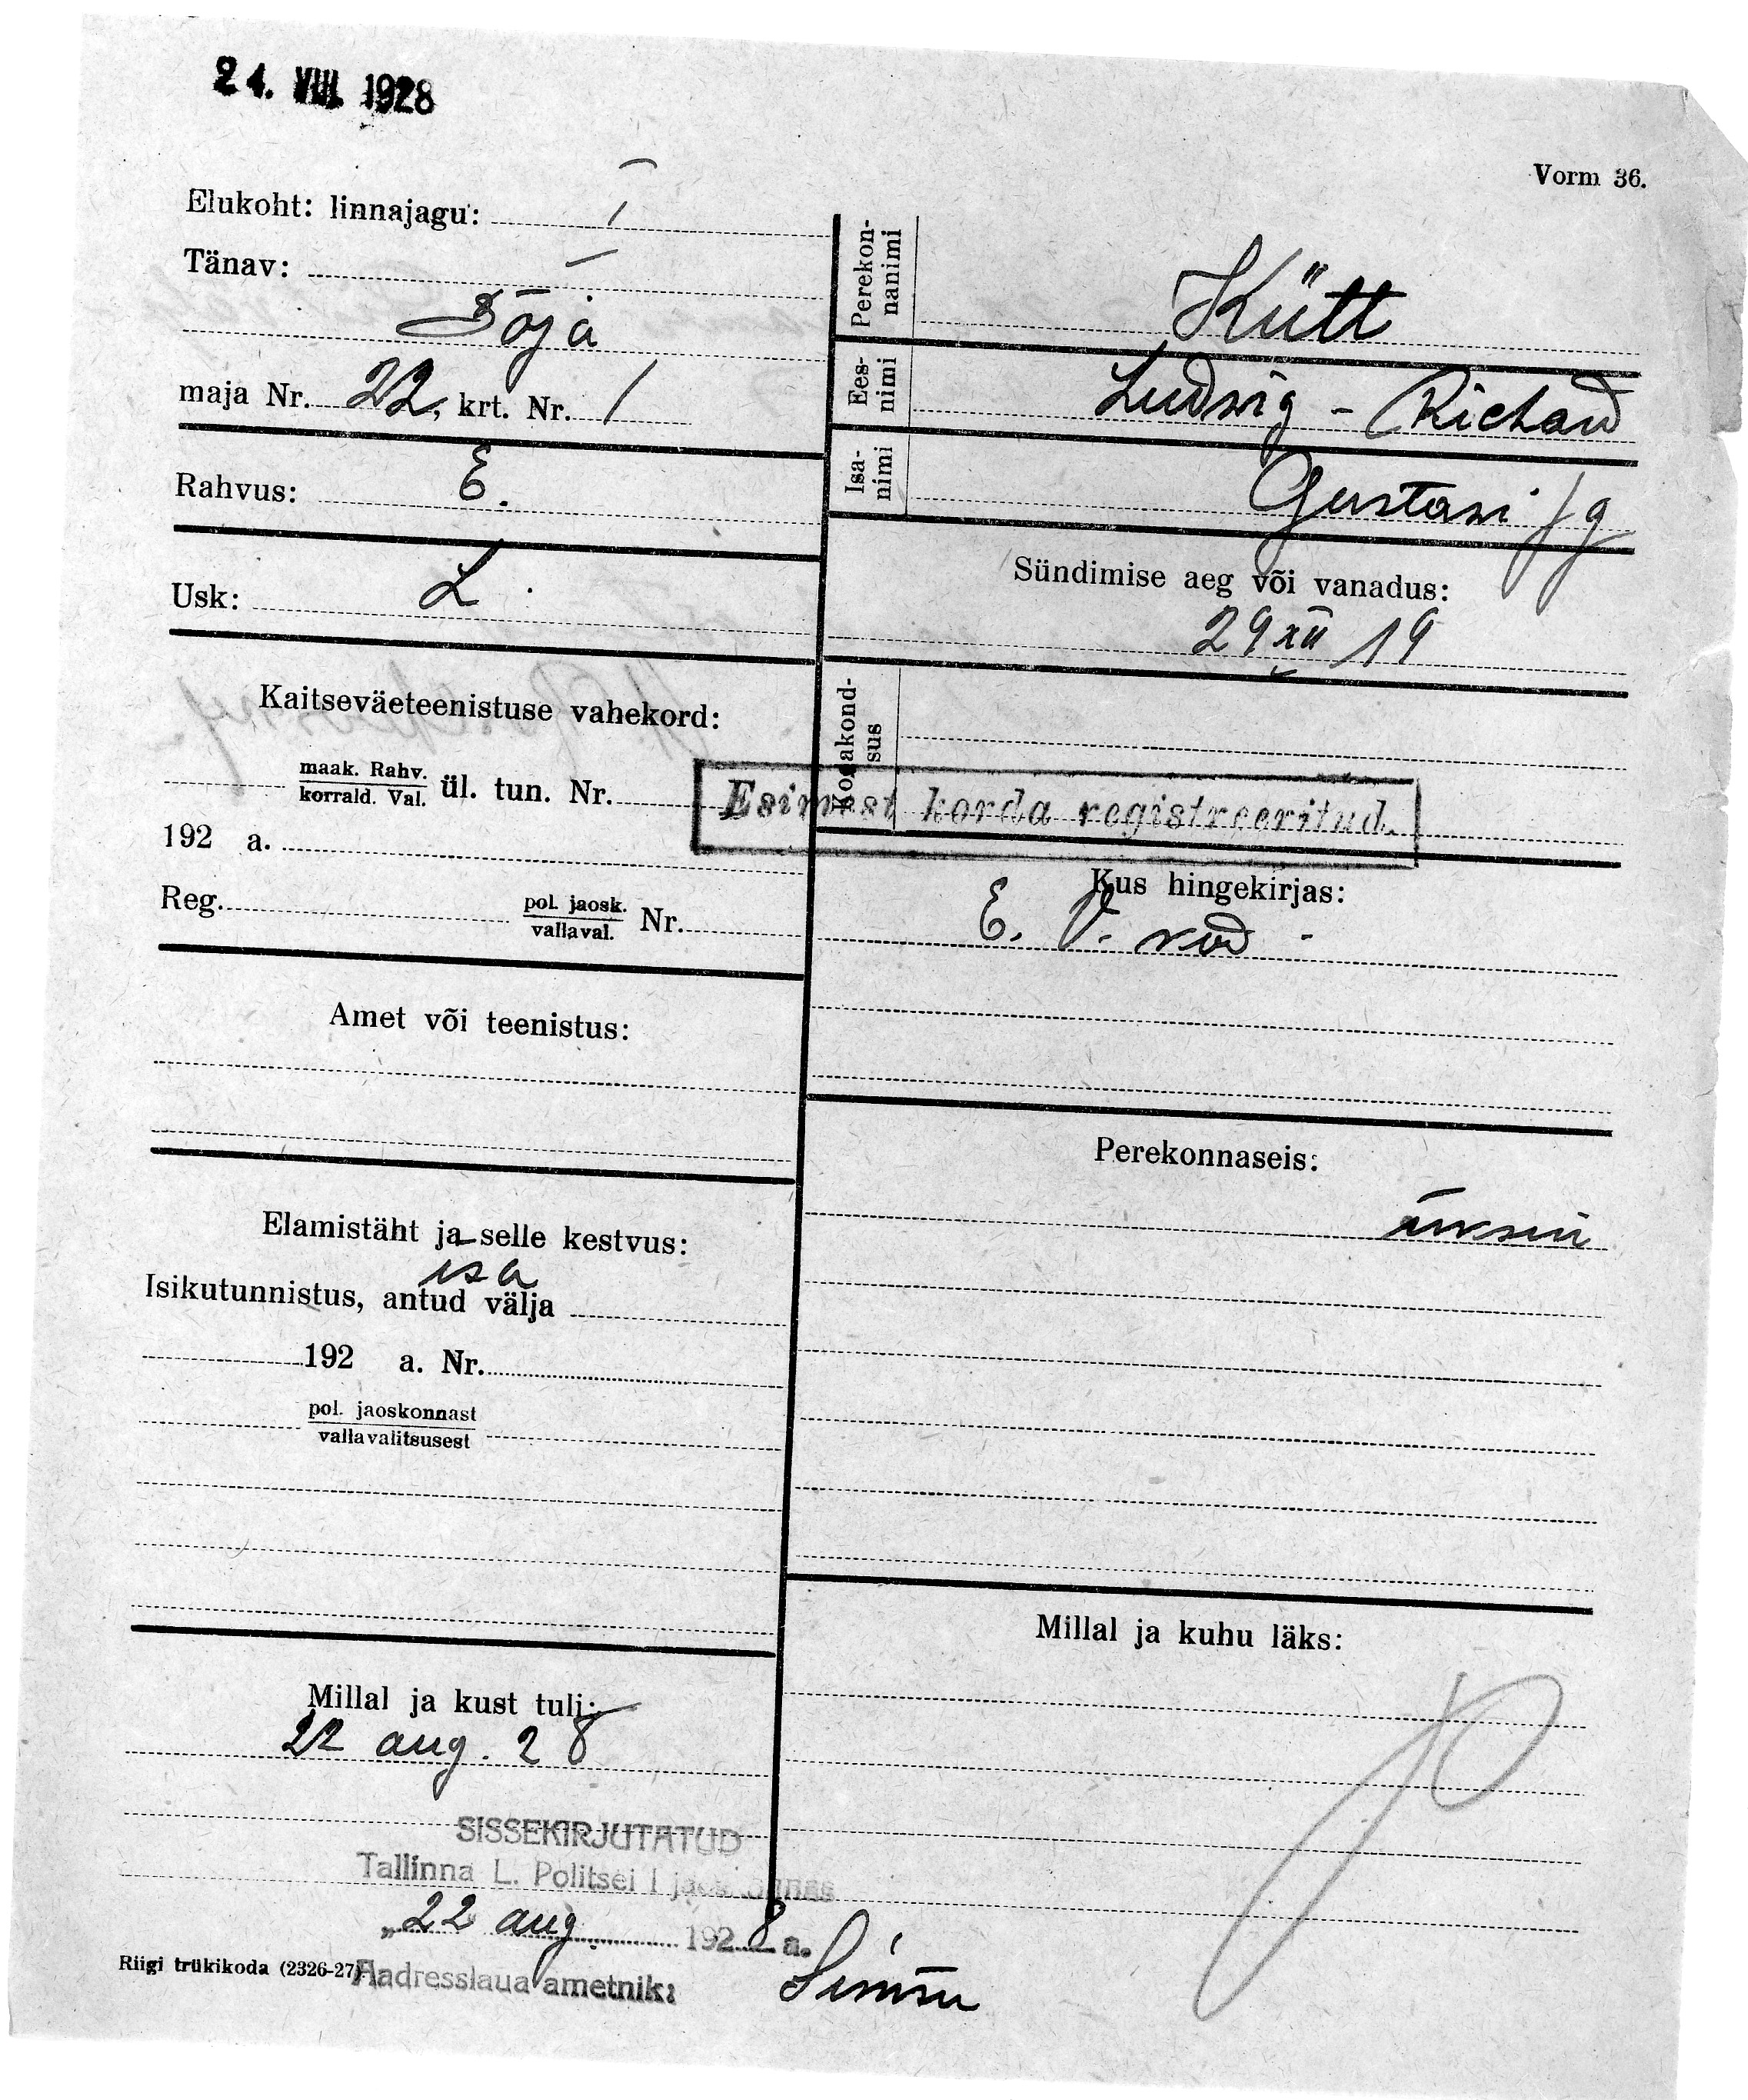 24. VIII. 1928
Vorm 36.
Elukoht: linnajagu: I
Tänav:
Sõja
maja Nr. 22, krt. Nr. 1
Rahvus: E.
Usk: L.
Kaitseväeteenistuse vahekord:
maak. Rahv.
korrald. Val. ül. tun. Nr.
192 a.
Reg. pol. jaosk.
vallaval. Nr.
Amet või teenistus:
Elamistäht ja selle kestvus:
isa
Isikutunnistus, antud välja
192 a. Nr.
pol. jaoskonnast
vallavalitsusest
Millal ja kust tuli:
22 aug. 28
SISSEKIRJUTATUD
Tallinna L. Politsei I
„22 aug. 1928 a.
Aadresslaua ametnik:
Riigi trükikoda (2326-27)
Perekon-
nanimi
Kütt
Ees-
nimi
Ludwig - Richard
Isa-
nimi
Gustavi jg
Sündimise aeg või vanadus:
29 XII 19
Kogakond-
sus
Esimest korda registreeritud.
Kus hingekirjas:
E. V.
Perekonnaseis:
Millal ja kuhu läks: